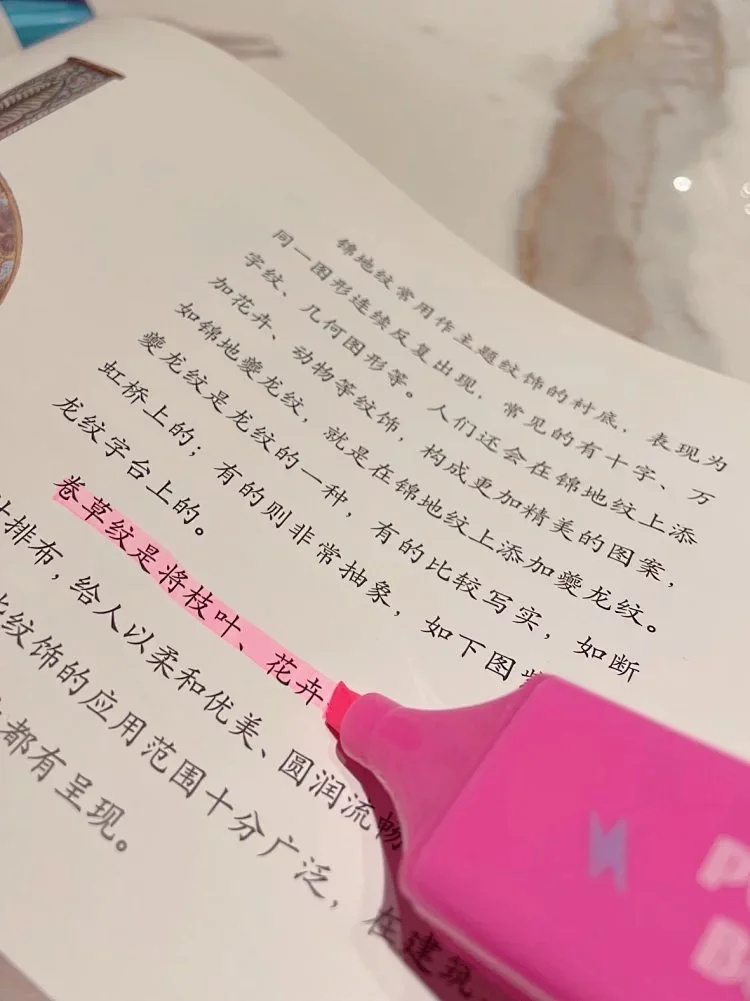 锦地纹常用作主题纹饰的衬底，表现为
同一图形连续反复出现，常见的有十字、万
字纹、几何图形等。人们还会在锦地纹上添
加花卉、动物等纹饰，构成更加精美的图案，
如锦地夔龙纹，就是在锦地纹上添加夔龙纹。
夔龙纹是龙纹的一种，有的比较写实，如断
虹桥上的；有的则非常抽象，如下图
龙纹字台上的。
卷草纹是将枝叶、花卉
排布，给人以柔和优美、圆润流畅
纹饰的应用范围十分广泛，在建筑
都有呈现。